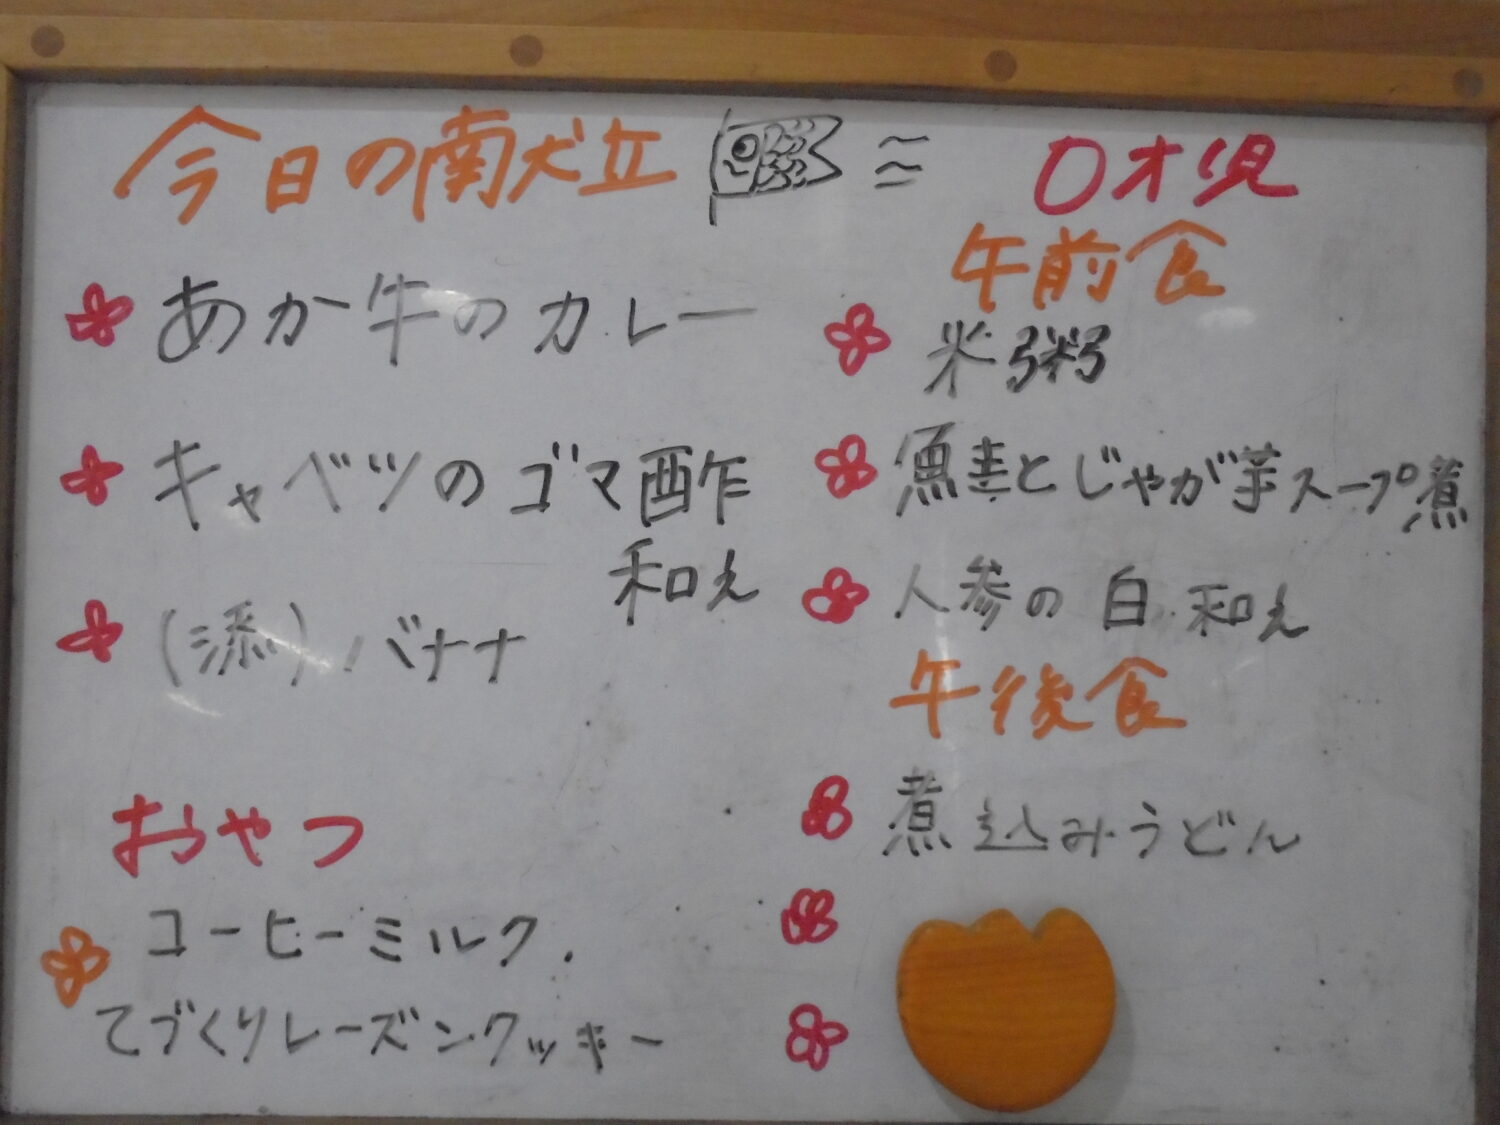 今日の献立
あか牛のカレー
キャベツのゴマ酢
和え
(添)バナナ
おやつ
コーヒーミルク.
てづくりレーズンクッキー
0才児
午前食
米粥
魚圭とじゃが芋スープ煮
人参の白和え
午後食
煮込みうどん